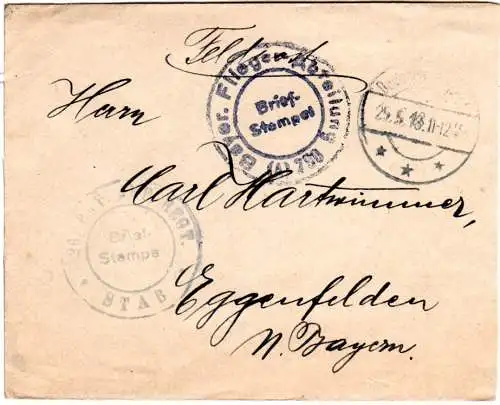 Feldpost
Bayer. Flieger Abteilung (A) 290
Brief-
Stempel
25.5.18.11-12
Herrn
Carl Hartwimmer,
Brief-
Stempe
STAB
Eggenfelden
N. Bayern.